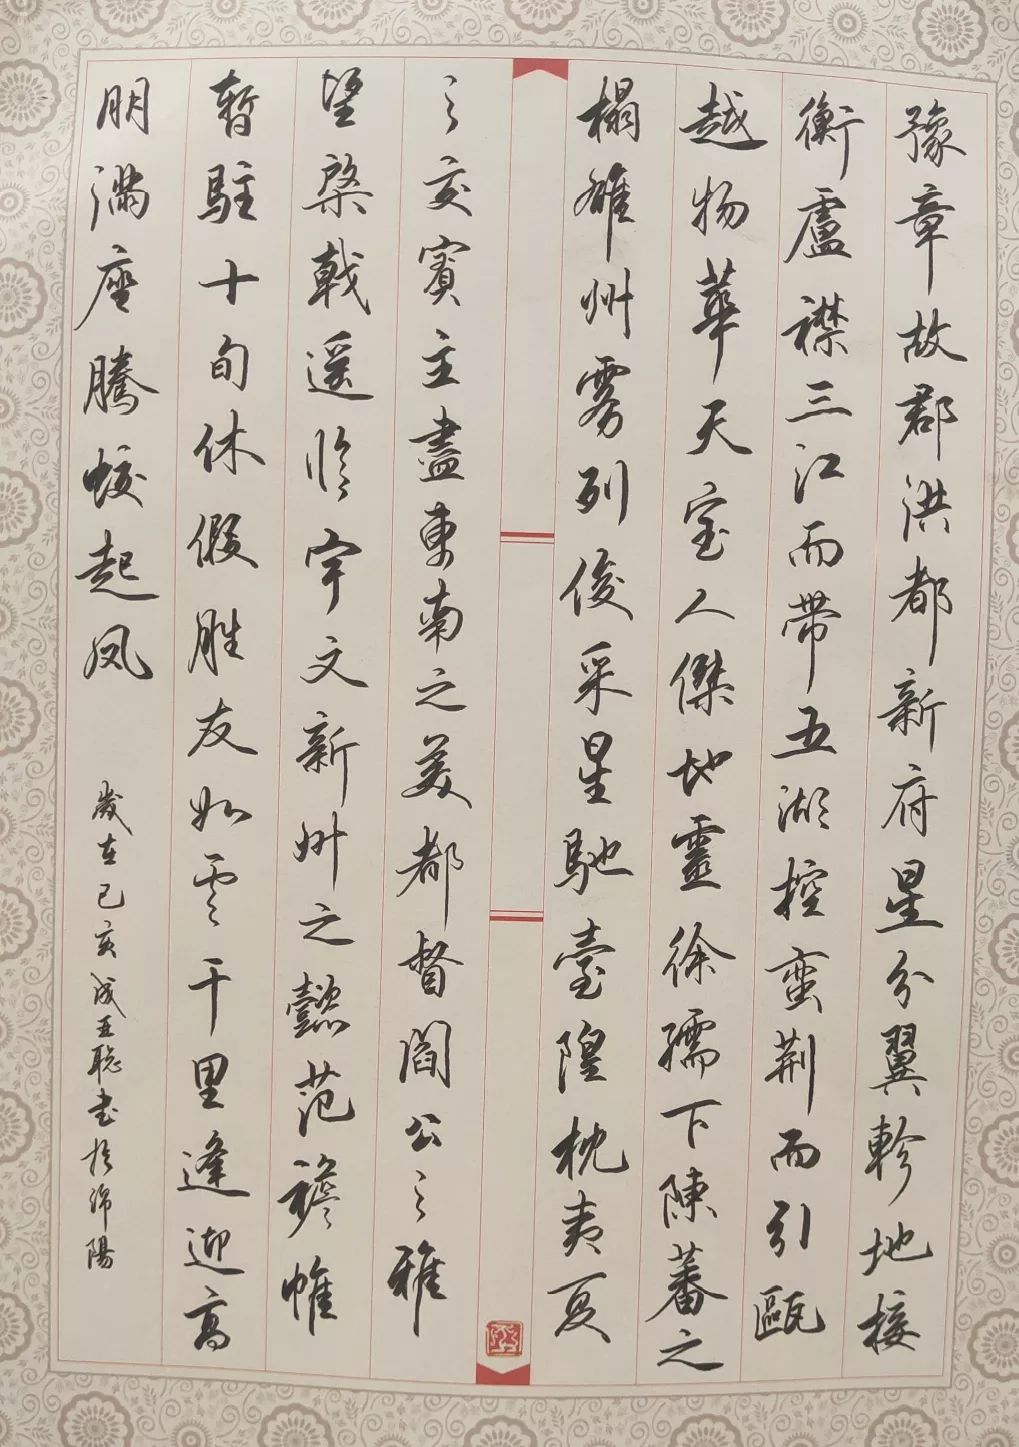 豫章故郡洪都新府星分翼軫地接
衡盧襟三江而带五湖控蛮荆而引甌
越物華天宝人傑地靈徐孺下陳蕃之
榻雄州雾列俊采星馳臺隍枕夷夏
之交賓主盡東南之美都督閻公之雅
望棨戟遥临宇文新州之懿范襜帷
暫駐十旬休假胜友如雲千里逢迎高
朋满座騰蛟起凤
歲在己亥聪書於綿陽